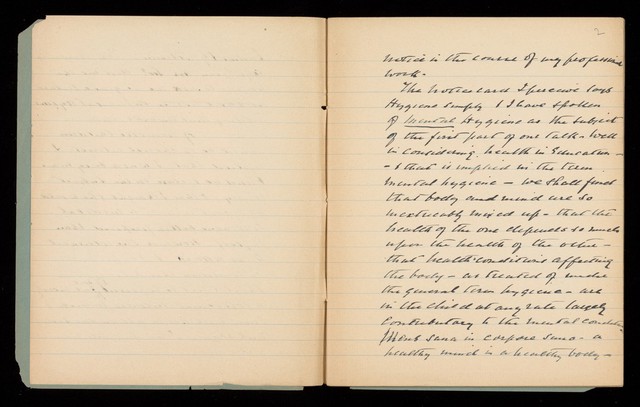 2
notice in the course of my professional
work.
The notice card I perceive says
Hygiene simply & I have spoken
of mental Hygiene as the subject
of the first part of our talk - Well
in considering health in Education -
- & that is implied in the term
mental hygiene - we shall find
that body and mind are so
inextricably mixed up - that the
health of the one depends so much
upon the health of the other -
that health conditions affecting
the body - as treated of under
the general term hygiene - are
in the child at any rate largely
contributory to the mental condition
Mens sana in corpore sano - a
healthy mind in a healthy body -